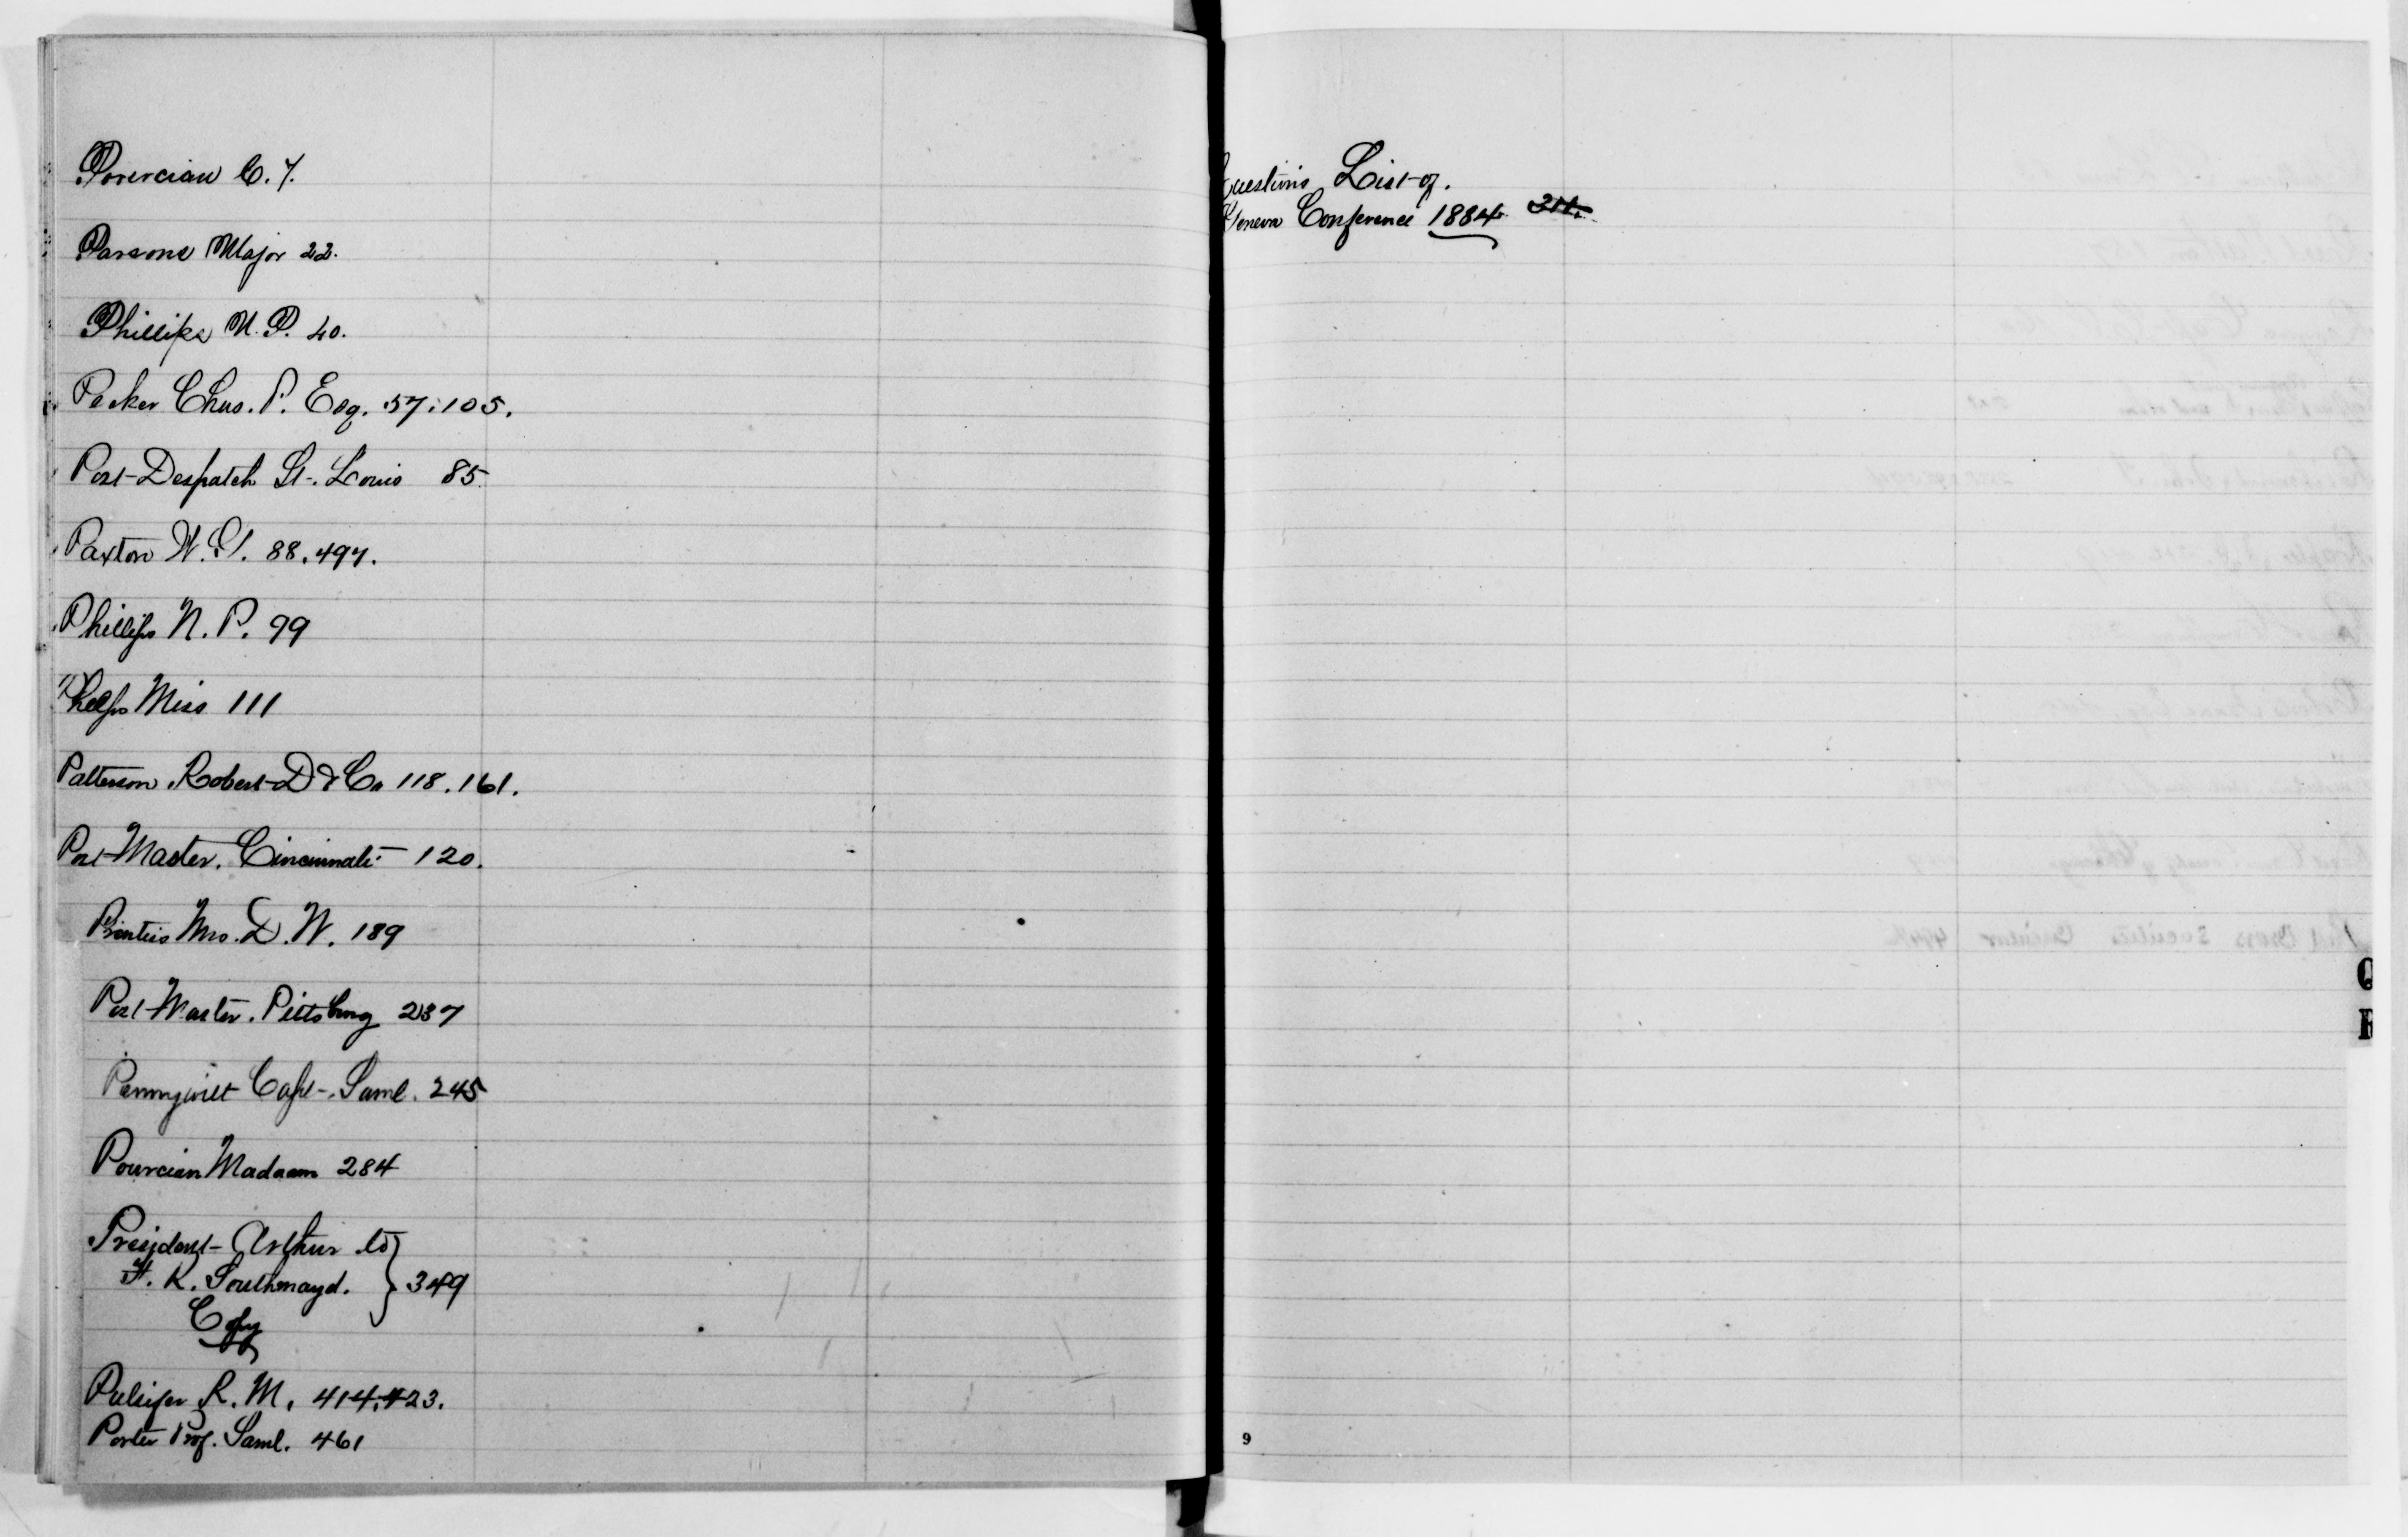 Porercian C. 7.
Parsons Major 22.
Phillips N. P. 40.
Packer Chas. P. Esq. 57.105.
Post-Despatch St. Louis 85
Paxton W. G. 88.497.
Phillips N. P. 99
Phelps Miss 111
Patterson Robert D & Co 118.161.
Post Master. Cincinnati 120.
Prentiss Mrs. D. W. 189
Post Master. Pittsburg 237
Pennywitt Capt. Saml. 245
Pourcian Madaam 284
President Arthur to
F. K. Southmayd. } 349
Copy
Pulsifer R. M. 414.423.
Porter Prof. Saml. 461
Questions List of.
Geneva Conference 1884 311.
Q
R
9